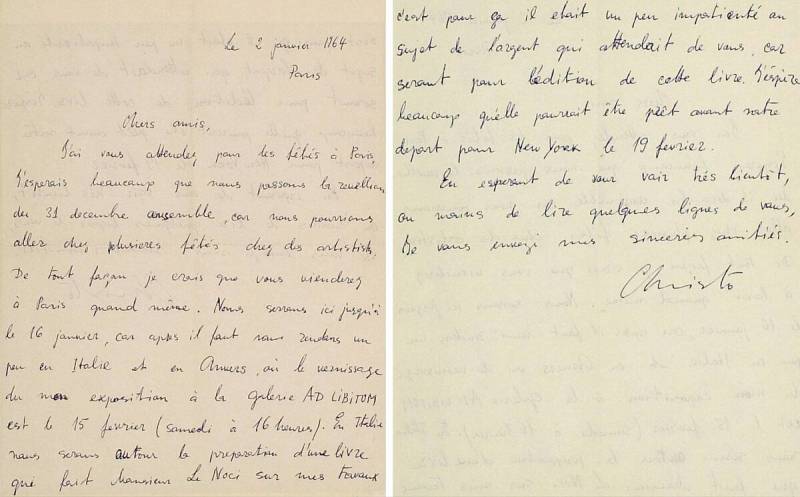 Le 2 janvier 1964
Paris
Chers amis,
J'ai vous attendez pour les fêtés à Paris,
J'esperais beaucoup que nous passons la reveillion
du 31 decembre ensemble, car nous pourrions
allez chez plusieres fêtés chez des artistists.
De tout façon je crois que vous vienderez
à Paris quand même. Nous serrons ici jusqu'à
le 16 janvier, car apres il faut nous rendons un
peu en Italie et en Anvers, où le vernissage
du mon exposition à la galerie AD LIBITOM
est le 15 fevrier (samedi à 16 heures). En Italie
nous serons autour la preparation d'une livre
que fait Monsieur Le Noci sur mes travaux
c'est pour ça il etait un peu impatienté au
sujet de l'argent qui attendait de vous, car
seront pour l'édition de cette livre. J'éspère
beaucoup qu'elle pourrait être prêt avant notre
depart pour New York le 19 fevrier.
En esperant de vour voir très bientôt,
ou moins de lire quelques lignes de vous,
Je vous envoyi mes sincerès amitiés.
Christo